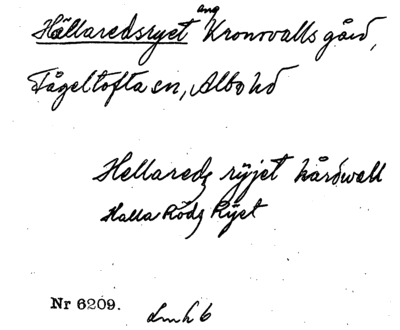 Hällaredsryet äng Kronovalls gård,
Fågeltofta sn, Albo hd
Hellareds ryjet hårdwall
Halla Röds Ryet
Nr 6209. Lmh 6